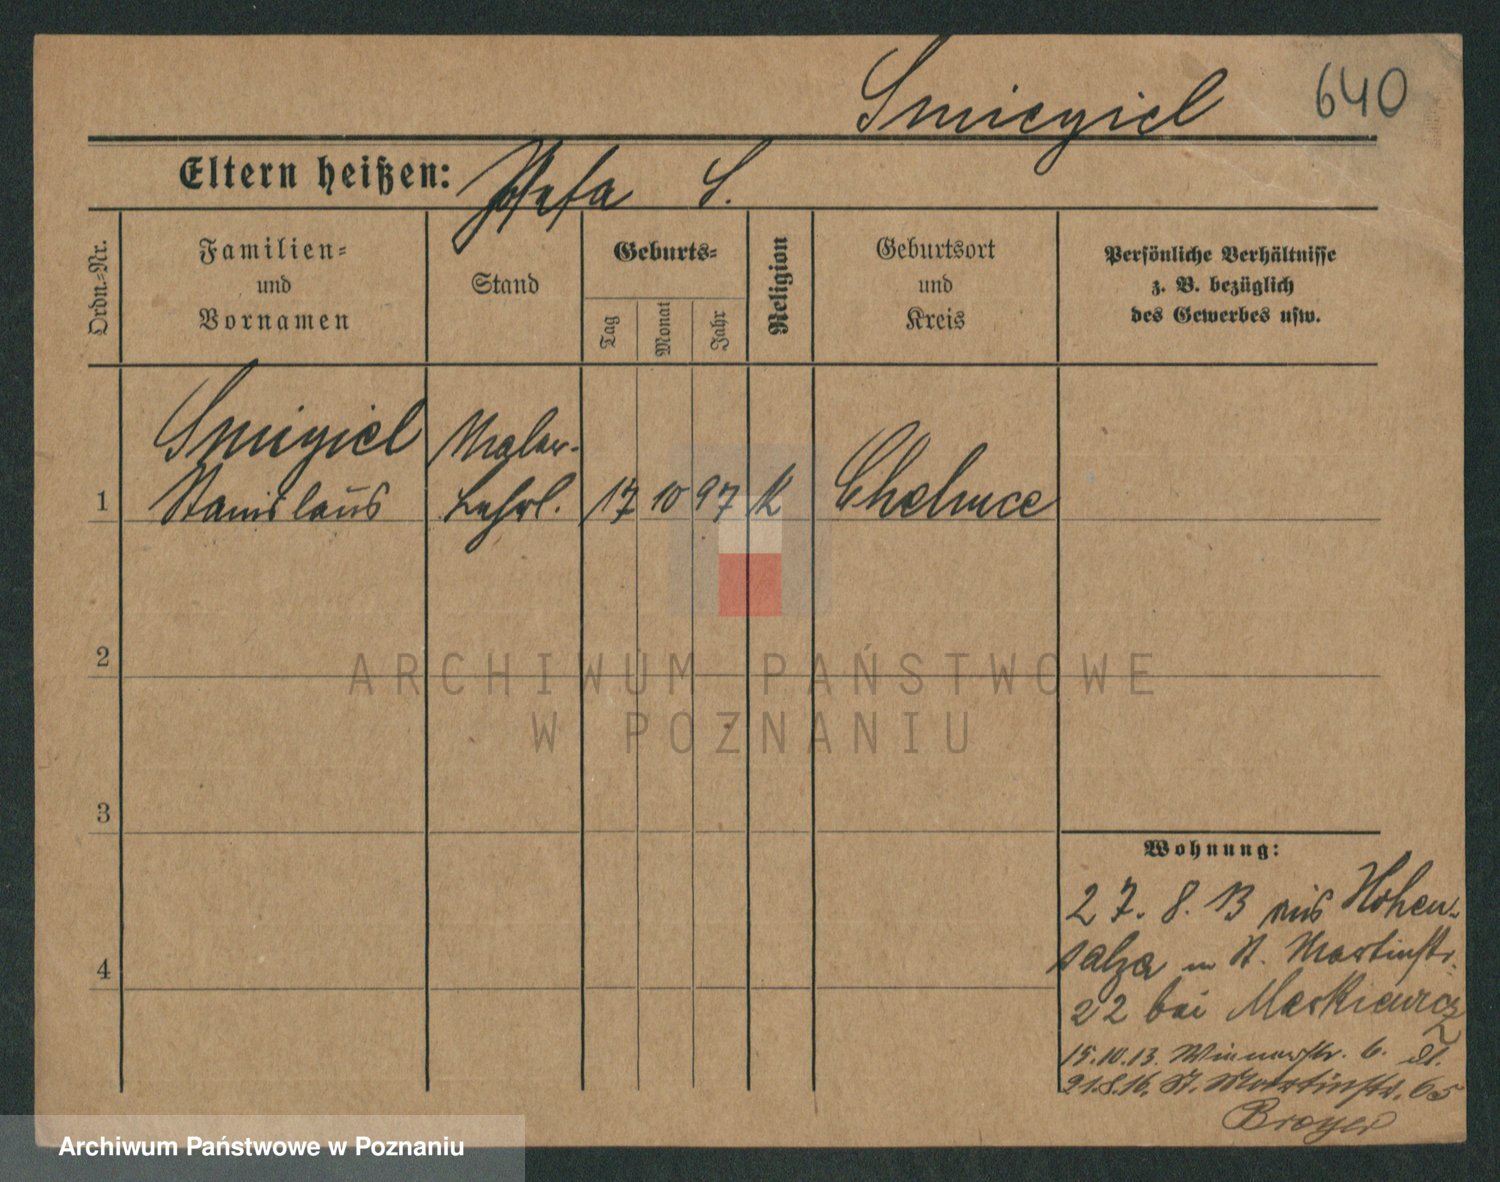 Smiegiel 640
Eltern heißen: Josefa S.
Ordn.=Nr.
Familien=
und
Vornamen
Stand
Geburts=
Tag
Monat
Jahr
Religion
Geburtsort
und
Kreis
Persönliche Verhältnisse
z. B. bezüglich
des Gewerbes usw.
1
Smigiel
Stanislaus
Maler-
Lehrl.
17 10 97 k Chelmce
2
3
4
Wohnung:
27. 8. 13 aus Hohen-
salza n St. Martinstr.
22 bei Maskiewicz
15.10.13. Wienerstr. 6.
21.8.16. St. Martinstr. 65
ARCHIWUM PAŃSTWOWE
W POZNANIU
Archiwum Państwowe w Poznaniu